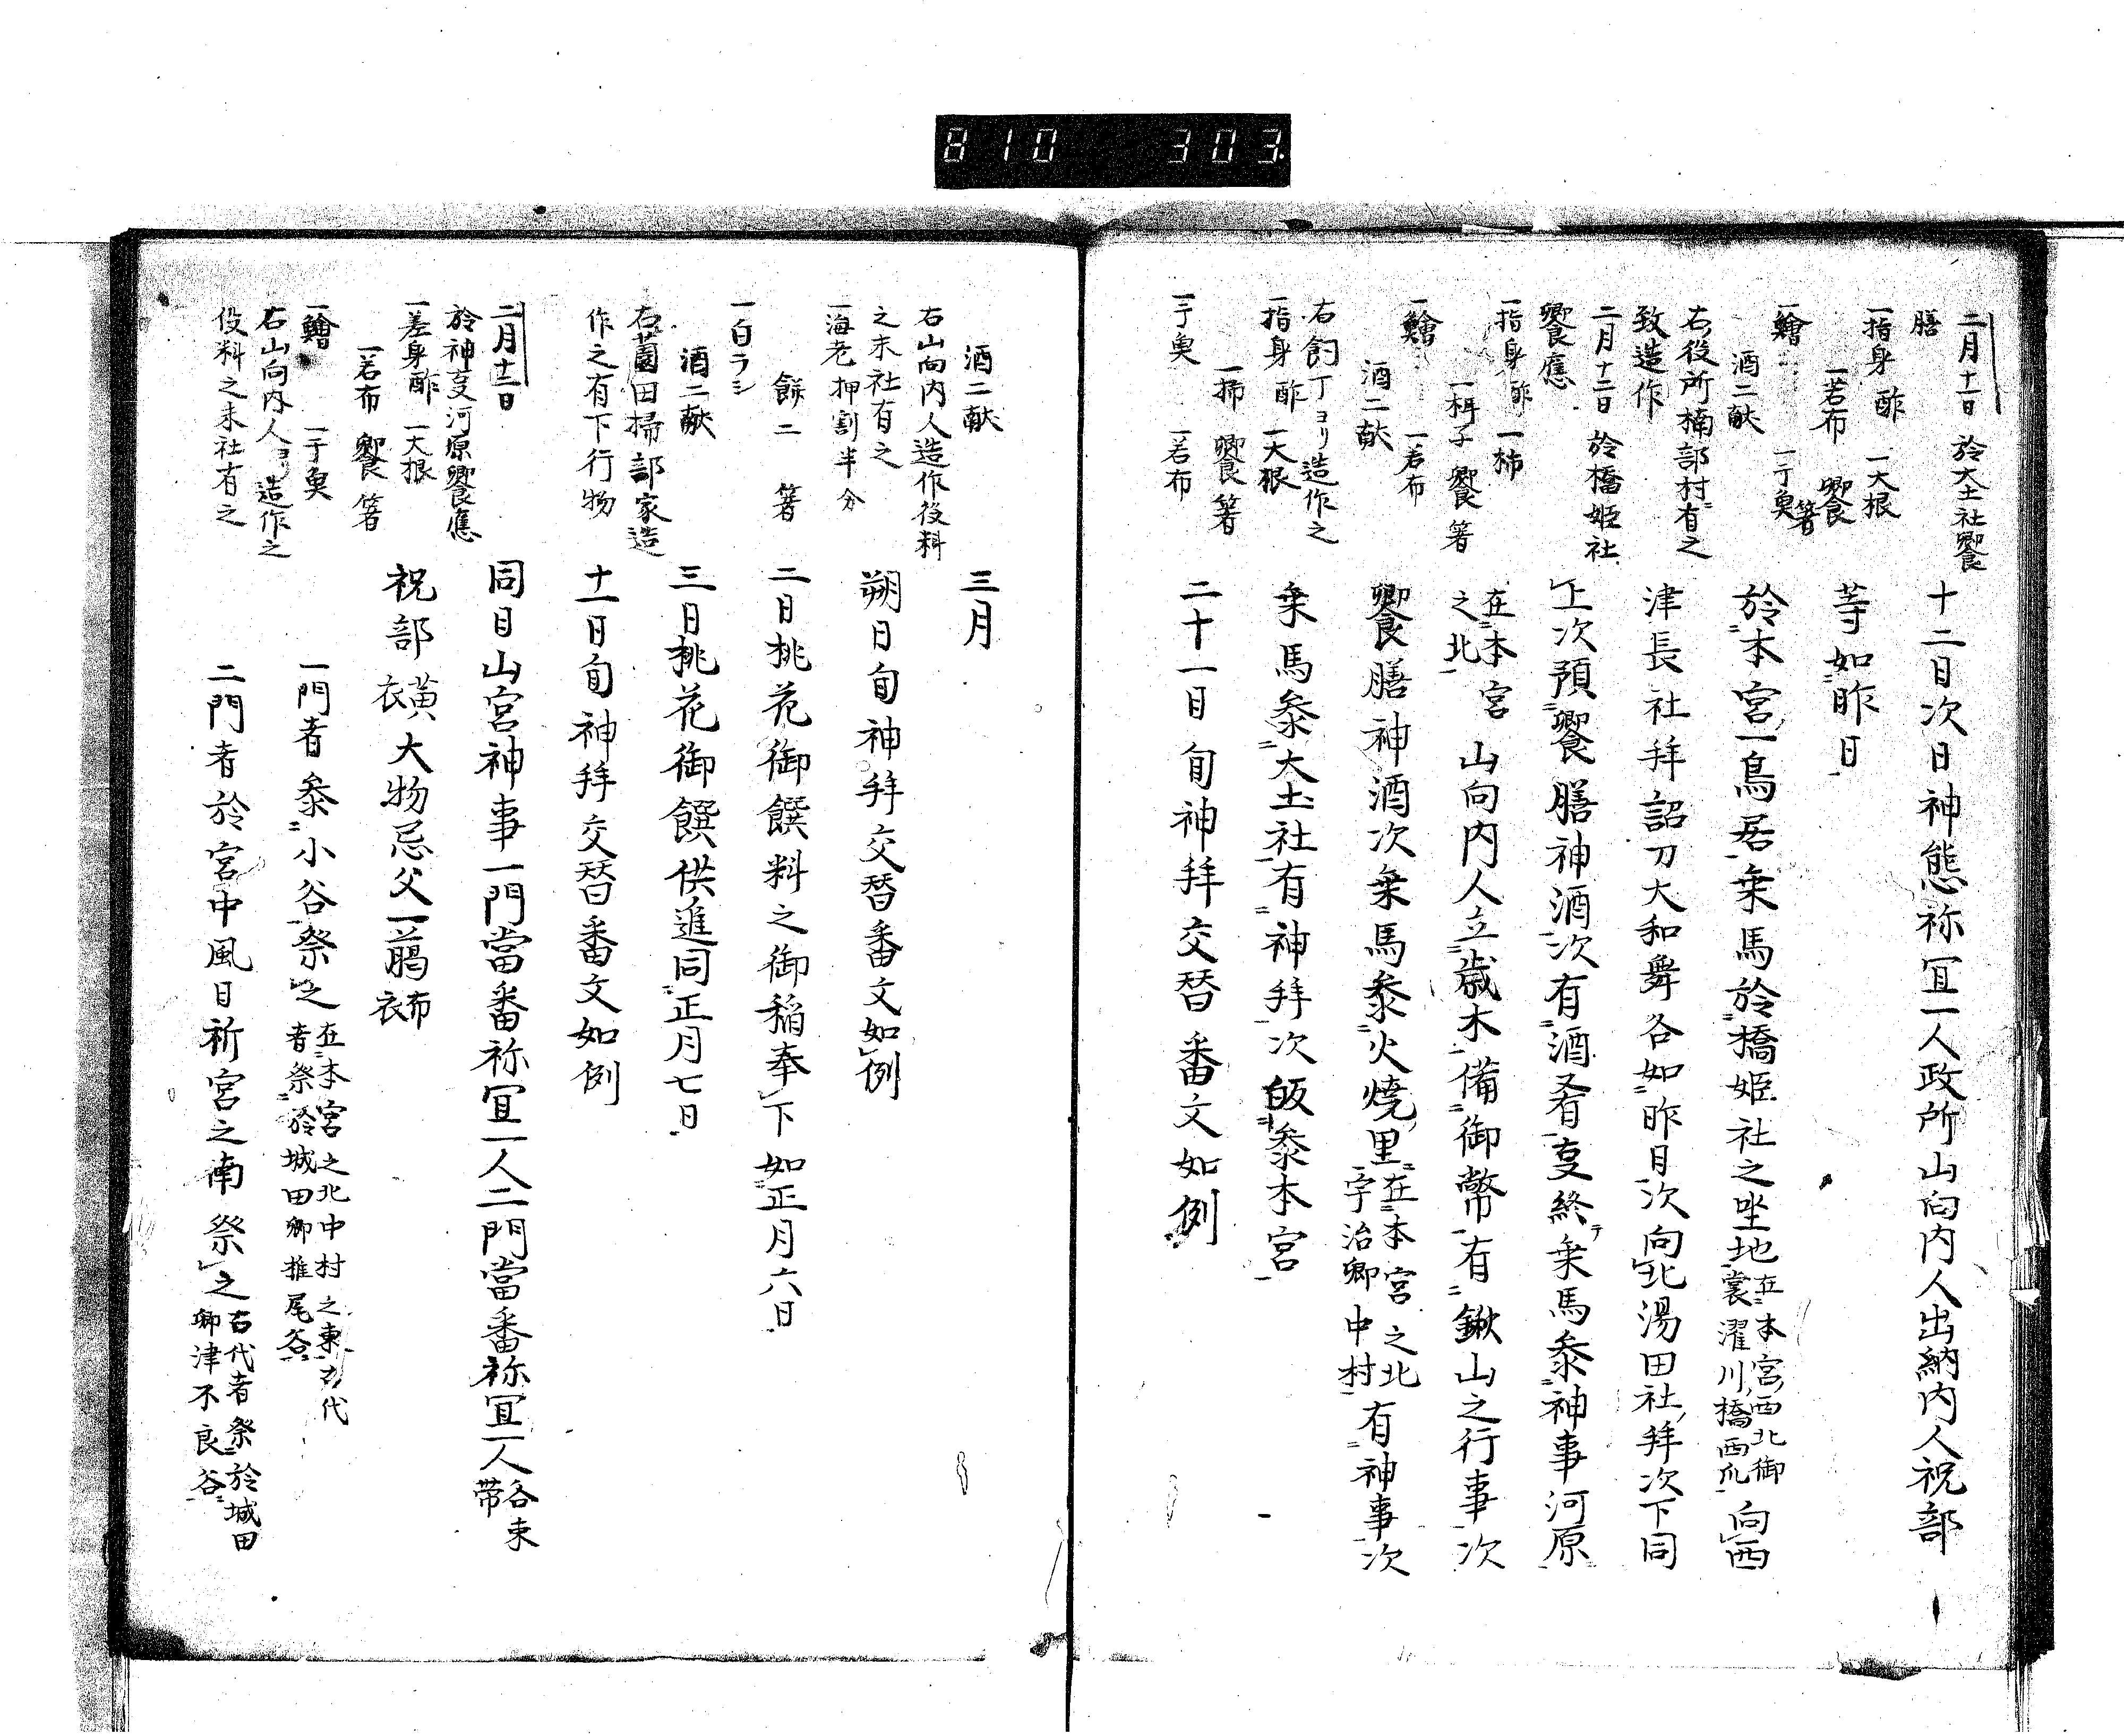 810 303
二月十一日 於大土社饗
膳
一指身 酢 一大根
一若布 饗 箸
一鱠 一于魚
酒二献
右役所楠部村ニ有之
致造作
二月十二日 於橋姫社
饗應
一指身 酢 一柿
一椁子 饗 箸
一鱠 一若布
酒二献
右釣丁ヨリ造作之
一指身 酢 一大根
一柿 饗 箸
一于魚 一若布
十二日次日神態祢冝一人政所山向内人出納内人祝部
等如昨日
於本宮一鳥居乗馬於橋姫社之坐地在本宮西北御裳濯川橋西爪向西
津長社拜詔刀大和舞各如昨日次向北湯田社拜次下同
上次預饗膳神酒次有酒肴叓終テ乗馬叅神事河原
在本宮之北 山向内人立歳木備御幣有鍬山之行事次
饗膳神酒次乗馬叅火燒里在本宮之北宇治郷中村有神事次
乗馬叅大土社有神拜次皈叅本宮
二十一日旬神拜交替番文如例
酒二献
右山向内人造作役料
之末社有之
一海老押割半分
餅二 箸
一白ラシ
酒二献
右薗田掃部家造
作之有下行物
二月十二日
於神叓河原饗應
一差身酢 一大根
一若布 饗 箸
一鱠 一于魚
右山向内人ヨリ造作之
役料之末社有之
三月
朔日旬神拜交替番文如例
二日桃花御饌料之御稲奉下如正月六日
三日桃花御饌供進同正月七日
十一日旬神拜交替番文如例
同日山宮神事一門當番祢冝一人二門當番祢冝一人各束帯
祝部黄衣大物忌父一﨟布衣
一門者叅小谷祭之在本宮之北中村之東古代者祭於城田郷椎尾谷
二門者於宮中風日祈宮之南祭之古代者祭於城田郷津不良谷